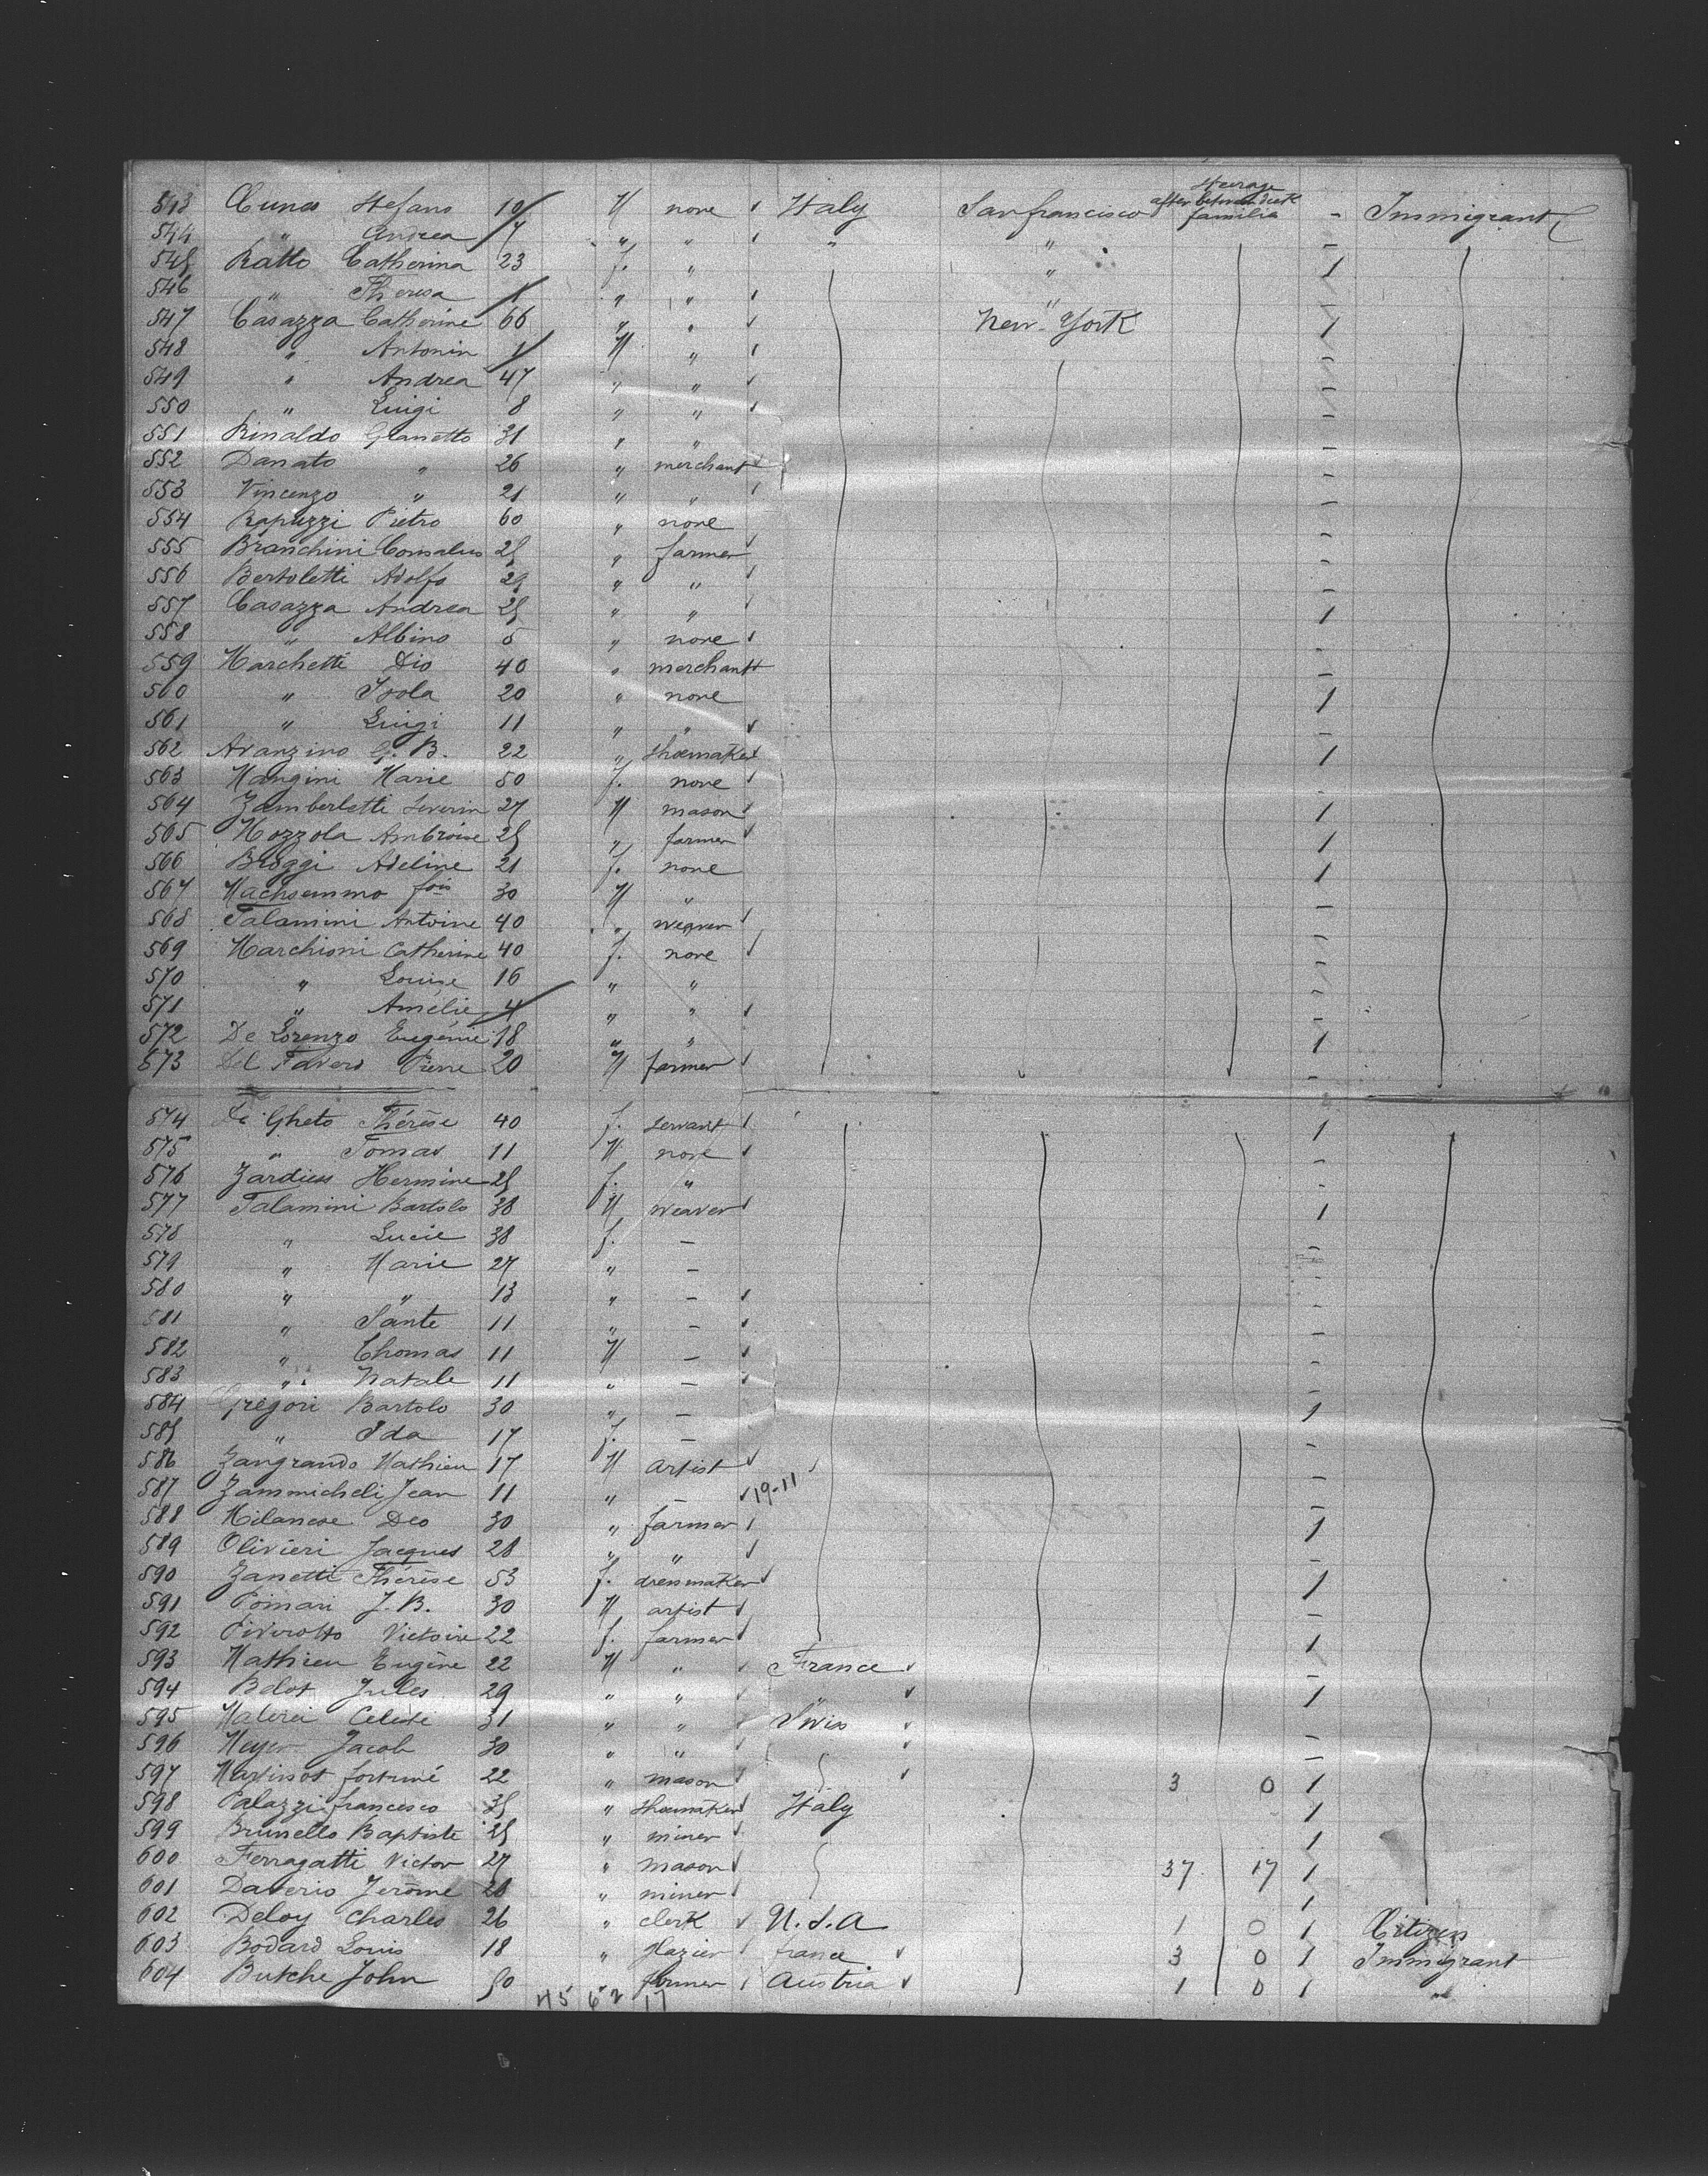 steerage
after between deck
543 Cuneo Stefano 10 M none Italy San francisco familia - Immigrant
544 " Andrea 7 " " " " -
545 Ratto Catherina 23 f. " " 1
546 " Theresa 1 " " " -
547 Casazza Catherine 66 " " New-York 1
548 " Antonin 1 M " -
549 " Andrea 47 " " -
550 " Luigi 8 " " -
551 Rinaldo Gianetto 31 " " -
552 Danato " 26 " merchant -
553 Vincenzo " 21 " " -
554 Rapuzzi Pietro 60 " none -
555 Branchini Consalus 25 " farmer -
556 Bertoletti Adolfo 29 " " -
557 Casazza Andrea 25 " " 1
558 " Albino 5 " none -
559 Marchetti Dio 40 " merchant -
560 " Isola 20 " none 1
561 " Luigi 11 " " -
562 Avanzino G. B. 22 " shoemaker 1
563 Mangini Marie 50 f. none -
564 Zamberletti Severin 27 M mason 1
565 Mozzola Ambroise 25 " farmer 1
566 Broggi Adeline 21 f. none 1
567 Machsemmo fois 30 M " -
568 Talamini Antoine 40 " weaver -
569 Marchioni Catherine 40 f. none -
570 " Louise 16 " " -
571 " Amélie 4 " " -
572 De Lorenzo Eugénie 18 " " 1
573 Del Favero Pierre 20 M farmer -
574 De Gheto Thérèse 40 f. servant 1
575 " Tomas 11 M none -
576 Zardius Hermine 25 f. " -
577 Talamini Bartolo 38 M weaver 1
578 " Lucie 38 f. - -
579 " Marie 27 " - -
580 " " 13 " - -
581 " Sante 11 " - -
582 " Thomas 11 M - -
583 " Natale 11 " - -
584 Gregori Bartolo 30 " - 1
585 " Ida 17 f. - -
586 Zangrando Mathieu 17 M artist -
587 Zammicheli Jean 11 " - 19-11 -
588 Milanese Deo 30 " farmer 1
589 Olivieri Jacques 28 " " -
590 Zanetti Thérèse 53 f. dressmaker 1
591 Pomari J. B. 30 M artist -
592 Pivirotto Victoire 22 f. farmer 1
593 Mathieu Eugène 22 M " France -
594 Belot Jules 29 " " 1
595 Malerei Celeste 31 " " Swiss -
596 Meyer Jacob 30 " " -
597 Marissot fortuné 22 " mason 3 0 1
598 Palazzi francesco 35 " shoemaker Italy 1
599 Brunello Baptiste 25 " miner 1
600 Ferragatti Victor 27 " mason 37 17 1
601 Daverio Jerôme 28 " miner 1
602 Deloy Charles 26 " clerk U.S.A 1 0 1 Citizen
603 Bodard Louis 18 " glazier france 3 0 1 Immigrant
604 Butche John 50 " farmer Austria 1 0 1 "
45 62 17